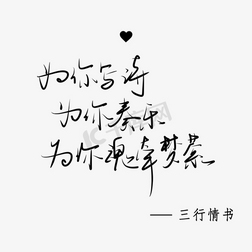 为你写诗
为你奏乐
为你魂牵梦萦
—— 三行情书